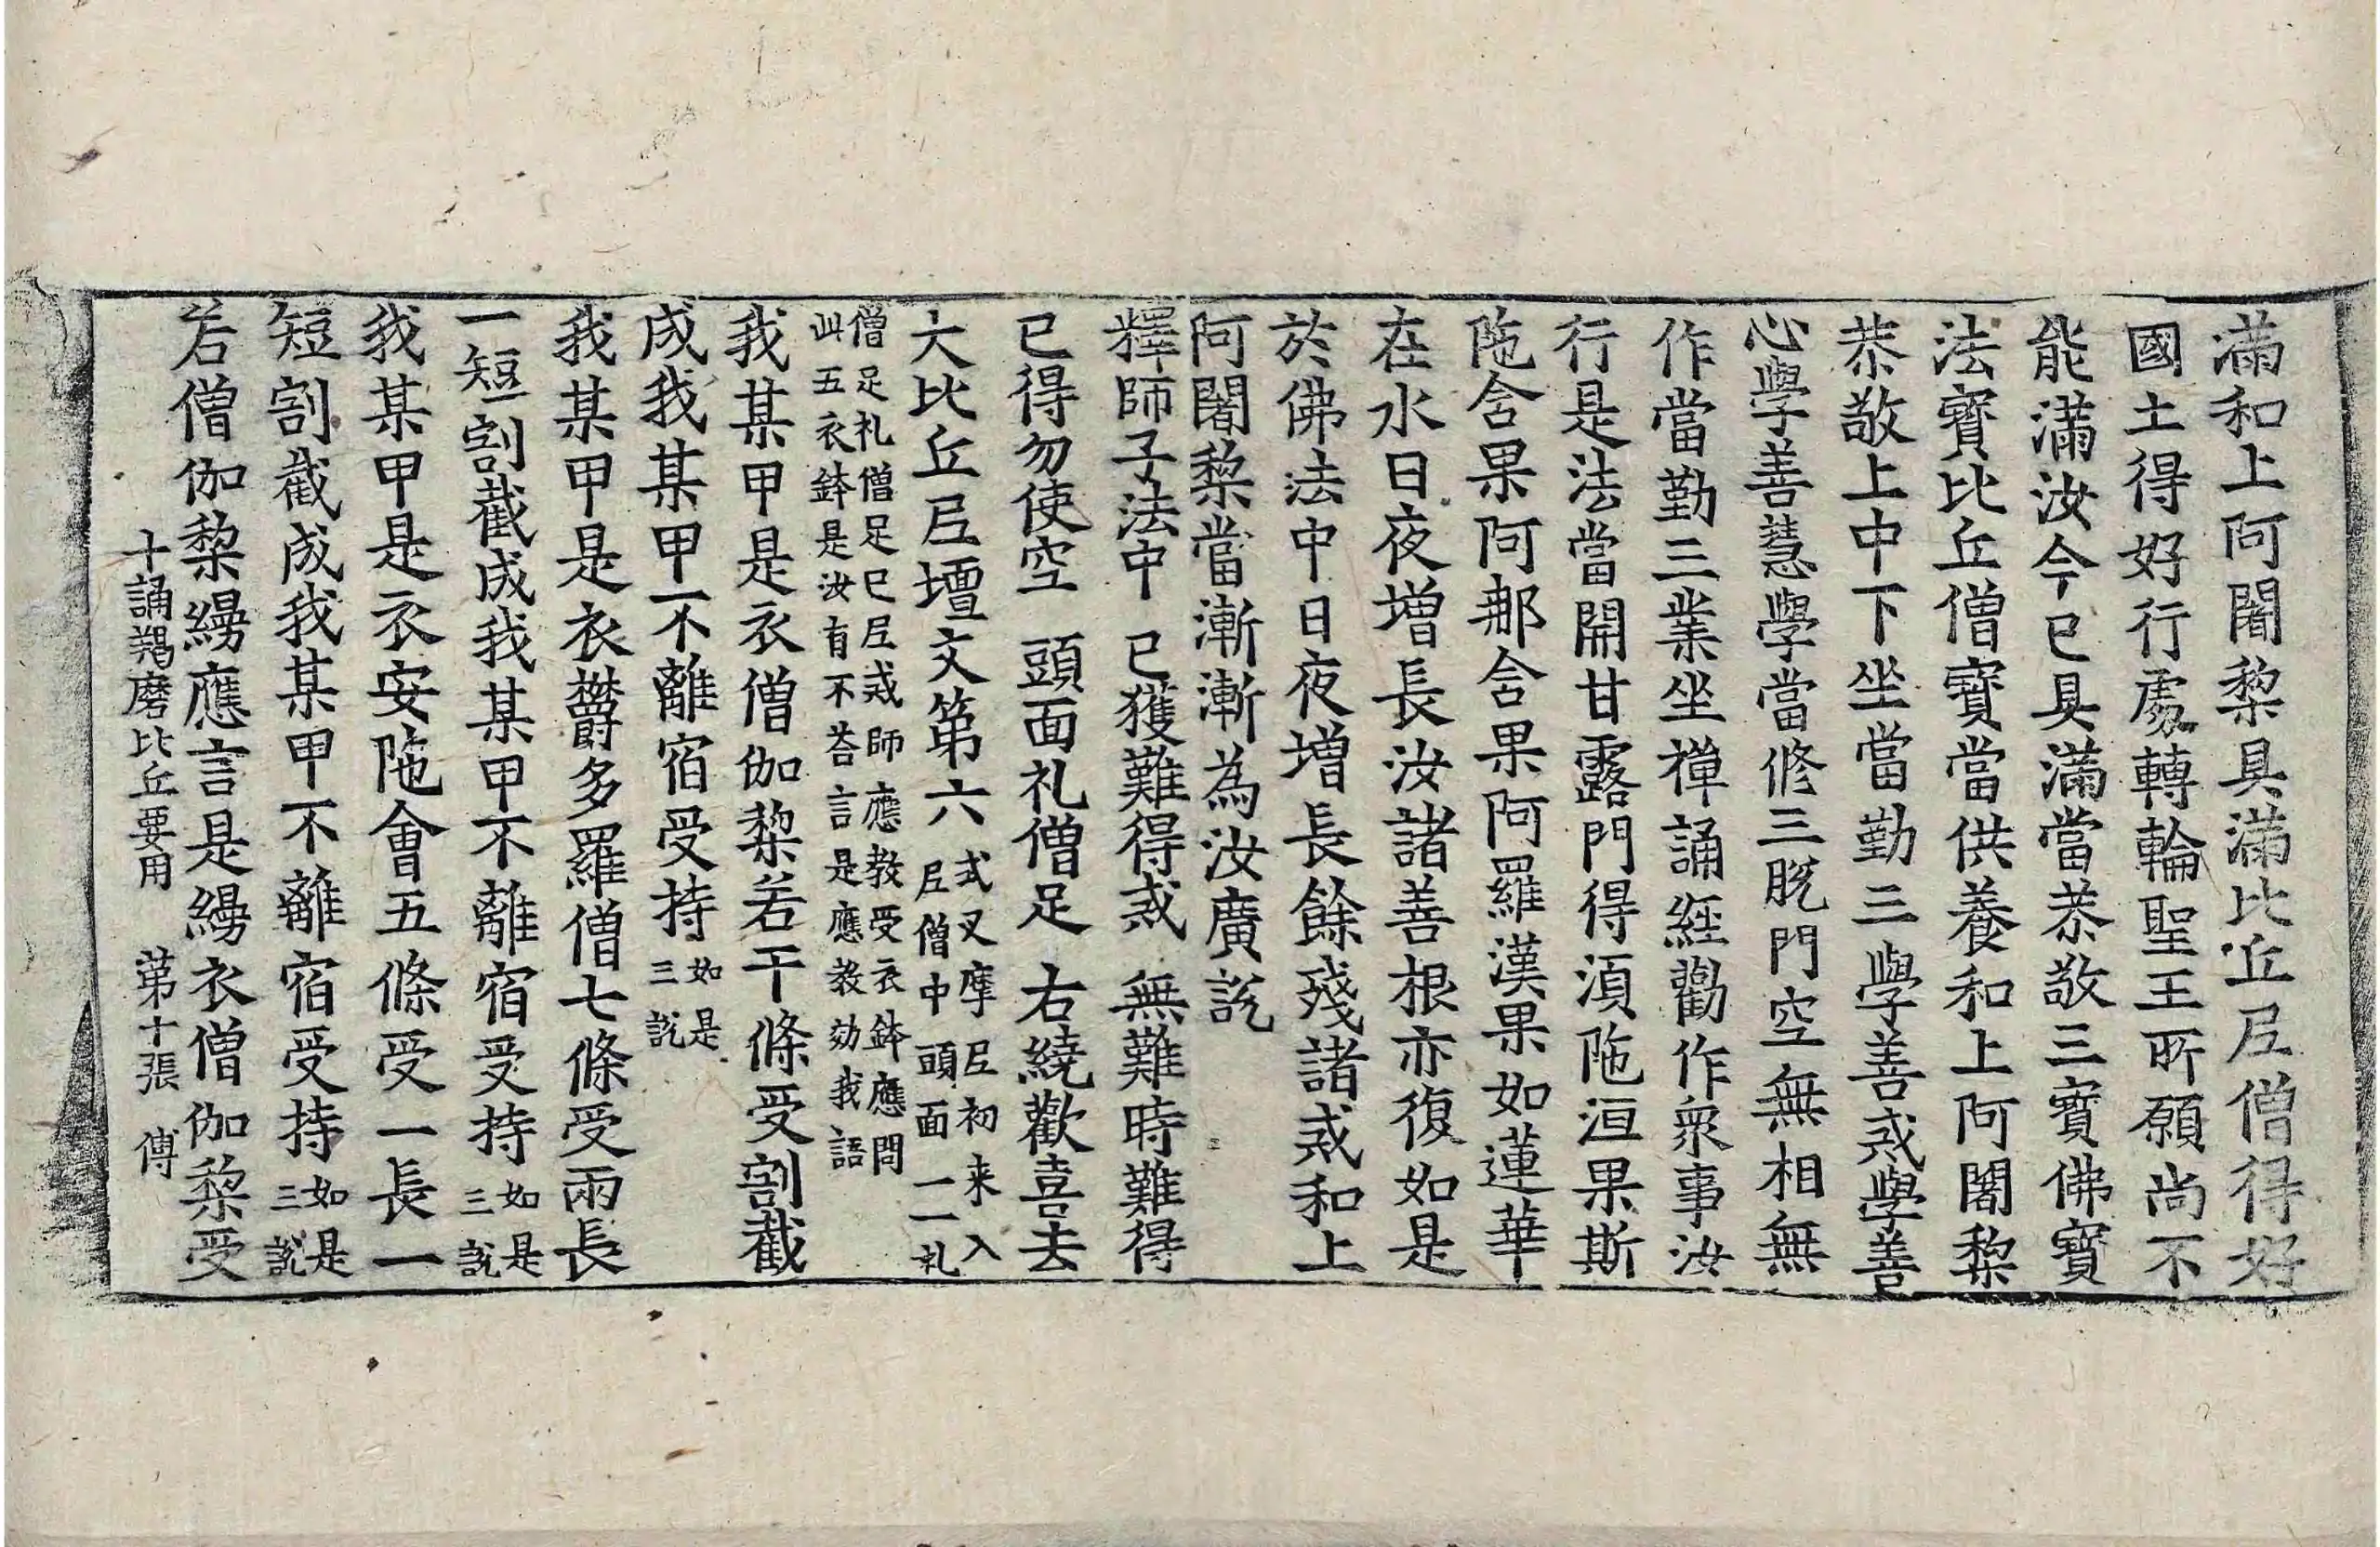 滿和上阿闍棃具滿比丘尼僧得好
國土得好行處轉輪聖王所願尚不
能滿汝今已具滿當恭敬三寳佛寳
法寳比丘僧寳當供養和上阿闍棃
恭敬上中下坐當勤三學善戒學善
心學善慧學當修三脫門空無相無
作當勤三業坐禪誦經勸作衆事汝
行是法當開甘露門得湏陁洹果斯
陁含果阿那含果阿羅漢果如蓮華
在水日夜增長汝諸善根亦復如是
於佛法中日夜增長餘殘諸戒和上
阿闍棃當漸漸為汝廣說
釋師子法中 已獲難得戒 無難時難得
已得勿使空 頭面礼僧足 右繞歡喜去
大比丘尼壇文第六 式叉摩尼初来入
尼僧中頭面一一礼
僧足礼僧足已尼戒師應教受衣鉢應問
此五衣鉢是汝有不荅言是應教効我語
我某甲是衣僧伽棃若干條受割截
成我某甲不離宿受持 如是
三說
我某甲是衣欝多羅僧七條受兩長
一短割截成我某甲不離宿受持 如是
三說
我某甲是衣安陁會五條受一長一
短割截成我某甲不離宿受持 如是
三說
若僧伽棃縵應言是縵衣僧伽棃受
十誦羯磨比丘要用 第十張 傅